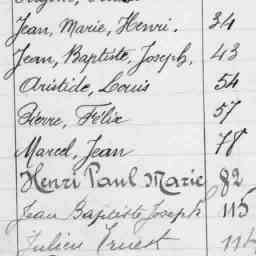 Jean, Marie, Henri. 34
Jean, Baptiste, Joseph, 43
Aristide, Louis 54
Pierre, Félix 57
Marcel, Jean 78
Henri Paul Marie 82
Jean Baptiste Joseph 115
Julien Ernest